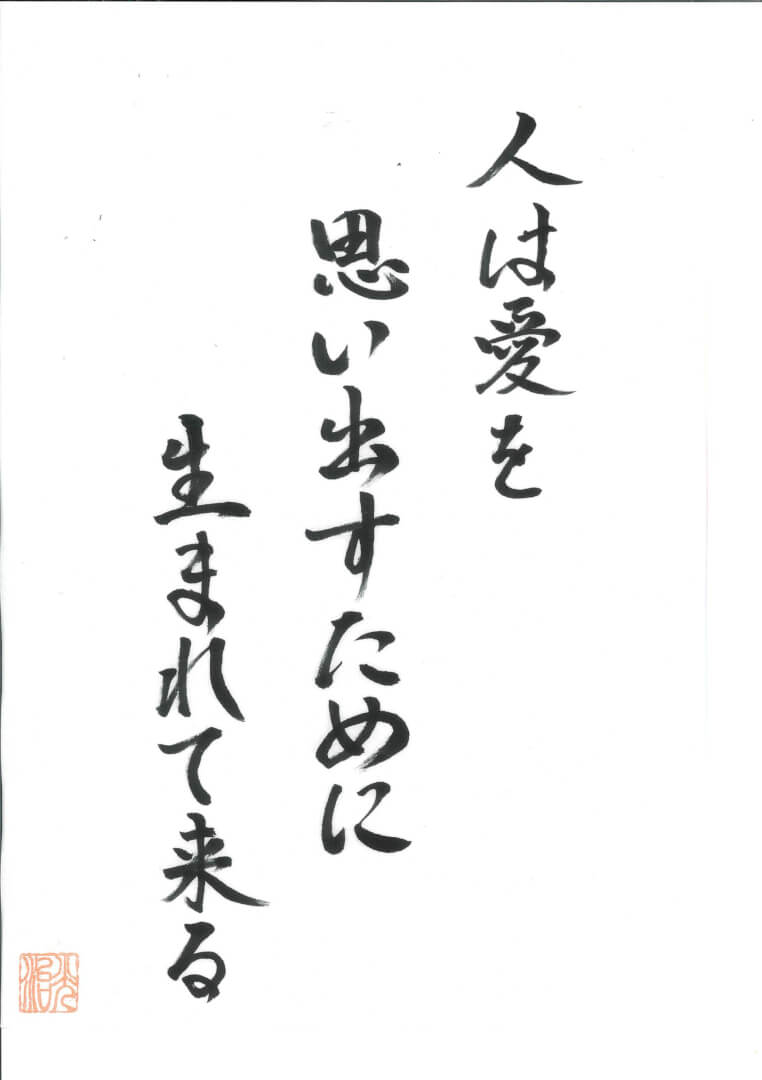 人は愛を
思い出すために
生まれて来る